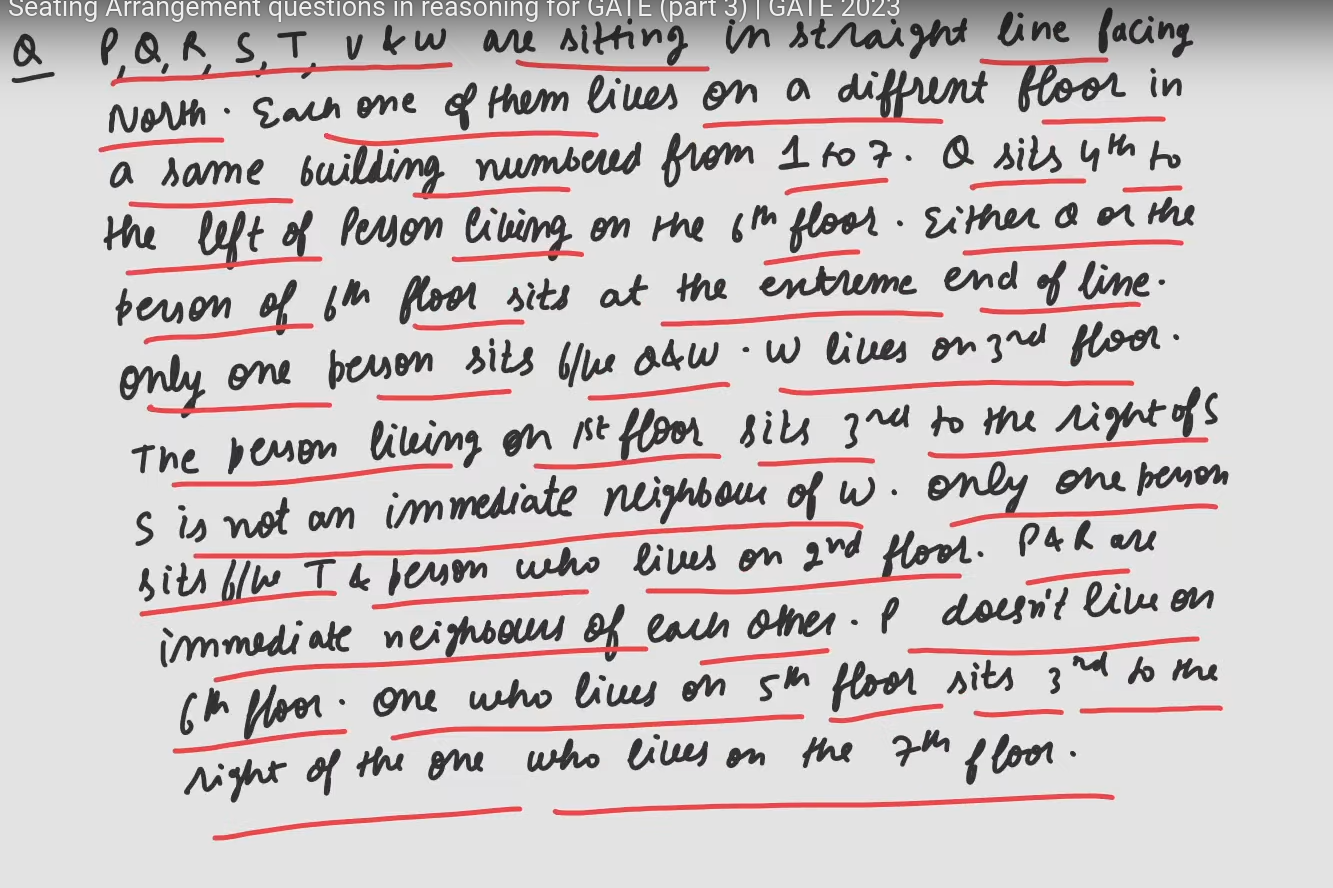 Seating Arrangement questions in reasoning for GATE (part 3) | GATE 2023
Q P, Q, R, S, T, V & W are sitting in straight line facing
North. Each one of them lives on a diffrent floor in
a same building numbered from 1 to 7. Q sits 4th to
the left of Person living on the 6th floor. Either Q or the
person of 6th floor sits at the extreme end of line.
only one person sits b/w Q&W. W lives on 3rd floor.
The person living on 1st floor sits 3rd to the right of S
S is not an immediate neighbour of W. only one person
sits b/w T & person who lives on 2nd floor. P & R are
immediate neighbours of each other. P doesn't live on
6th floor. One who lives on 5th floor sits 3rd to the
right of the one who lives on the 7th floor.